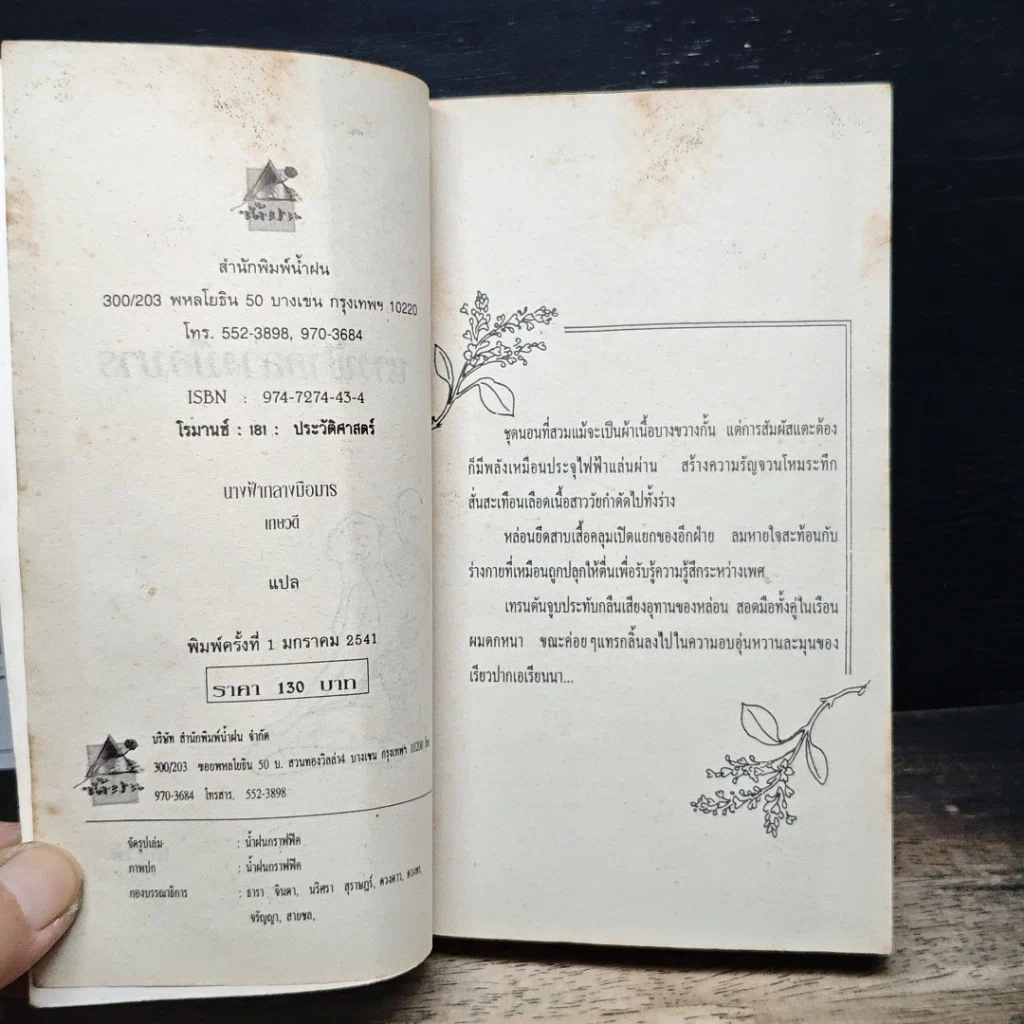 สำนักพิมพ์น้ำฝน
300/203 พหลโยธิน 50 บางเขน กรุงเทพฯ 10220
โทร. 552-3898, 970-3684
ISBN : 974-7274-43-4
โรมานซ์ : 181 : ประวัติศาสตร์
นางฟ้ากลางมือมาร
เกษวดี
แปล
พิมพ์ครั้งที่ 1 มกราคม 2541
ราคา 130 บาท
บริษัท สำนักพิมพ์น้ำฝน จำกัด
300/203 ซอยพหลโยธิน 50 บ. สวนทองวิลล่า4 บางเขน กรุงเทพฯ 10200 โทร
970-3684 โทรสาร. 552-3898
จัดรูปเล่ม : น้ำฝนกราฟฟิค
ภาพปก : น้ำฝนกราฟฟิค
กองบรรณาธิการ : ธารา จินดา, นริศรา สุราษฎร์, ดวงดาว,
จรัญญา, สายชล,
ชุดนอนที่สวมแม้จะเป็นผ้าเนื้อบางขวางกั้น แต่การสัมผัสแตะต้อง
ก็มีพลังเหมือนประจุไฟฟ้าแล่นผ่าน สร้างความรัญจวนโหมระทึก
สั่นสะเทือนเลือดเนื้อสาววัยกำดัดไปทั้งร่าง
หล่อนยึดสาบเสื้อคลุมเปิดแยกของอีกฝ่าย ลมหายใจสะท้อนกับ
ร่างกายที่เหมือนถูกปลุกให้ตื่นเพื่อรับรู้ความรู้สึกระหว่างเพศ
เทรนตันจูบประทับกลืนเสียงอุทานของหล่อน สอดมือทั้งคู่ในเรือน
ผมดกหนา ขณะค่อยๆแทรกลิ้นลงไปในความอบอุ่นหวานละมุนของ
เรียวปากเอเรียนนา...